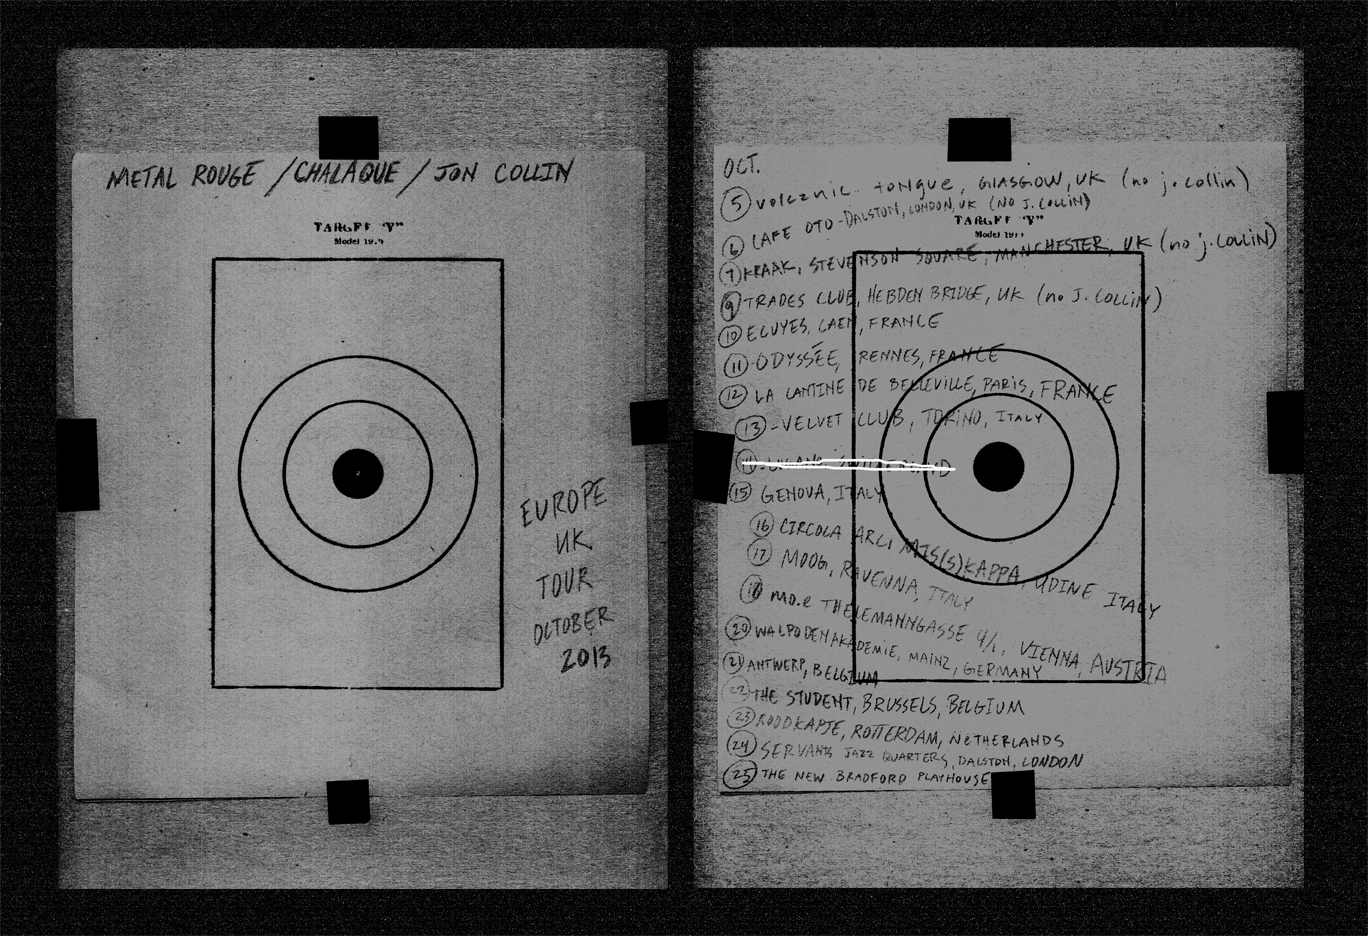 METAL ROUGE / CHALAQUE / JON COLLIN
TARGET "V"
EUROPE
UK
TOUR
OCTOBER
2013
OCT.
5 volcanic tongue, GLASGOW, UK (no j. collin)
6 CAFE OTO - DALSTON, LONDON, UK (NO J. COLLIN)
TARGET "V"
7 KRAAK, STEVENSON SQUARE, MANCHESTER, UK (no j. COLLIN)
9 TRADES CLUB, HEBDEN BRIDGE, UK (no J. COLLIN)
10 ECUYES, CAEN, FRANCE
11 - ODYSSÉE, RENNES, FRANCE
12 LA CANTINE DE BELLEVILLE, PARIS, FRANCE
13 - VELVET CLUB, TORINO, ITALY
15 GENOVA, ITALY
16 CIRCOLA ARCI MIS(S)KAPPA, UDINE ITALY
17 MOOG, RAVENNA, ITALY
18 mo.e THELEMANNGASSE 4/1, VIENNA, AUSTRIA
20 WALPODENAKADEMIE, MAINZ, GERMANY
21 ANTWERP, BELGIUM
22 THE STUDENT, BRUSSELS, BELGIUM
23 ROODKAPJE, ROTTERDAM, NETHERLANDS
24 SERVANT JAZZ QUARTERS, DALSTON, LONDON
25 THE NEW BRADFORD PLAYHOUSE